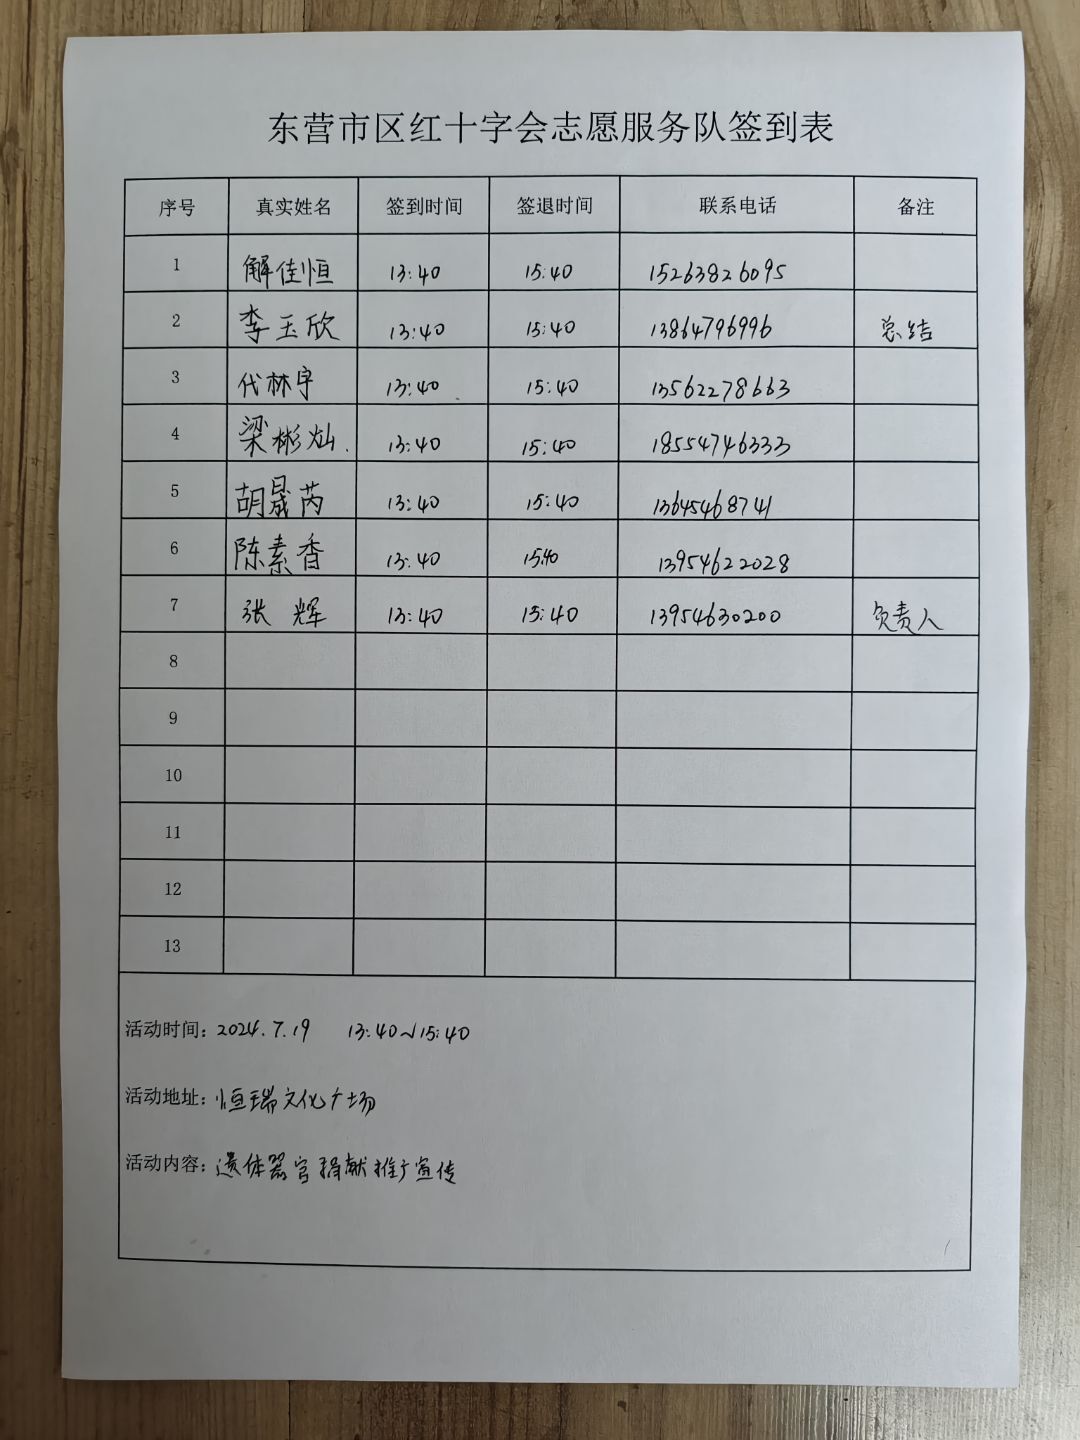 东营市区红十字会志愿服务队签到表
序号 真实姓名 签到时间 签退时间 联系电话 备注
1 解佳恒 13:40 15:40 15263826095
2 李玉欣 13:40 15:40 13864796996 总结
3 代林宇 13:40 15:40 13562278663
4 梁彬灿. 13:40 15:40 18554746333
5 胡晟芮 13:40 15:40 13645468741
6 陈素香 13:40 15:40 13954622028
7 张辉 13:40 15:40 13954630200 负责人
8
9
10
11
12
13
活动时间: 2024.7.19 13:40~15:40
活动地址: 恒瑞文化广场
活动内容: 遗体器官捐献推广宣传